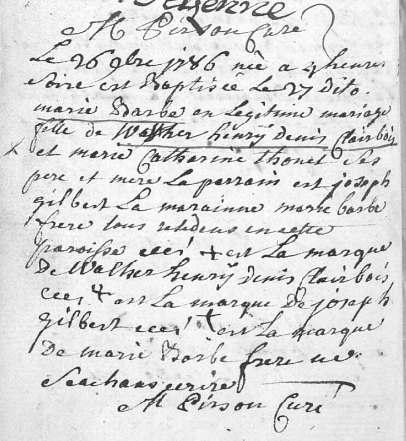 M Pirson Curé
Le 26 9bre 1786 née a 4 heures
Soire est Baptisée Le 27 dito
marie Barbe en Legitime mariage
fille de Walther henry denis Clairbois
et marie Catharine thonet Ses
pere et mere La parrain est joseph
gilbert La marainne marie barbe
frere tous residens en cette
paroisse ceci + est La marque
de Walther henry denis Clairbois
ceci + est La marque de joseph
gilbert ceci + est La marque
De marie Barbe frere ne
Seachans ecrire
M Pirson Curé